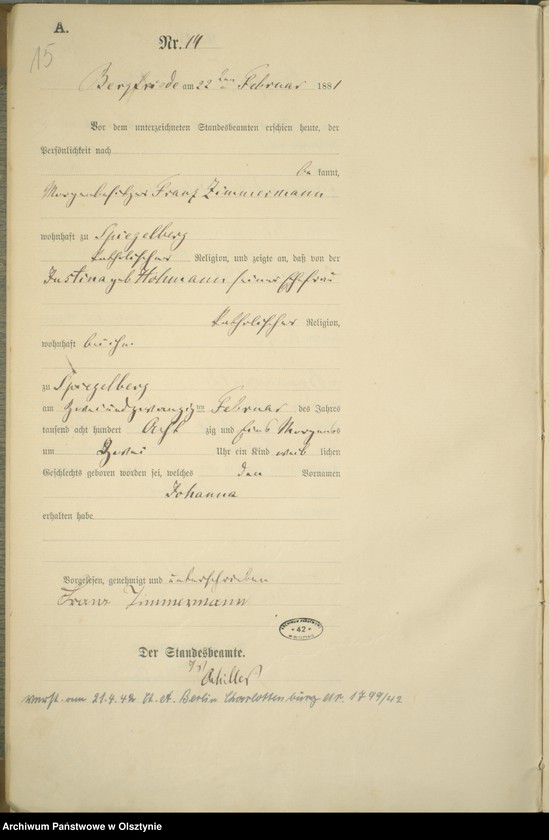 A.
15
Nr. 14
Bergfriede am 22 ten Februar 1881
Vor dem unterzeichneten Standesbeamten erschien heute, der
Persönlichkeit nach
be kannt,
Franz Zimmermann
wohnhaft zu Spiegelberg
katholischer Religion, und zeigte an, daß von der
Justina geb Hohmann seiner Ehefrau
katholischer Religion,
wohnhaft bei ihm
zu Spiegelberg
am zweiundzwanzig ten Februar des Jahres
tausend acht hundert Acht zig und Eins Morgens
um Zwei Uhr ein Kind weib lichen
Geschlechts geboren worden sei, welches den Vornamen
Johanna
erhalten habe.
Vorgelesen, genehmigt und unterschrieben
Franz Zimmermann
42
Der Standesbeamte.
21.4.42 St. A. Berlin Charlottenburg Nr. 1749/42
Archiwum Państwowe w Olsztynie